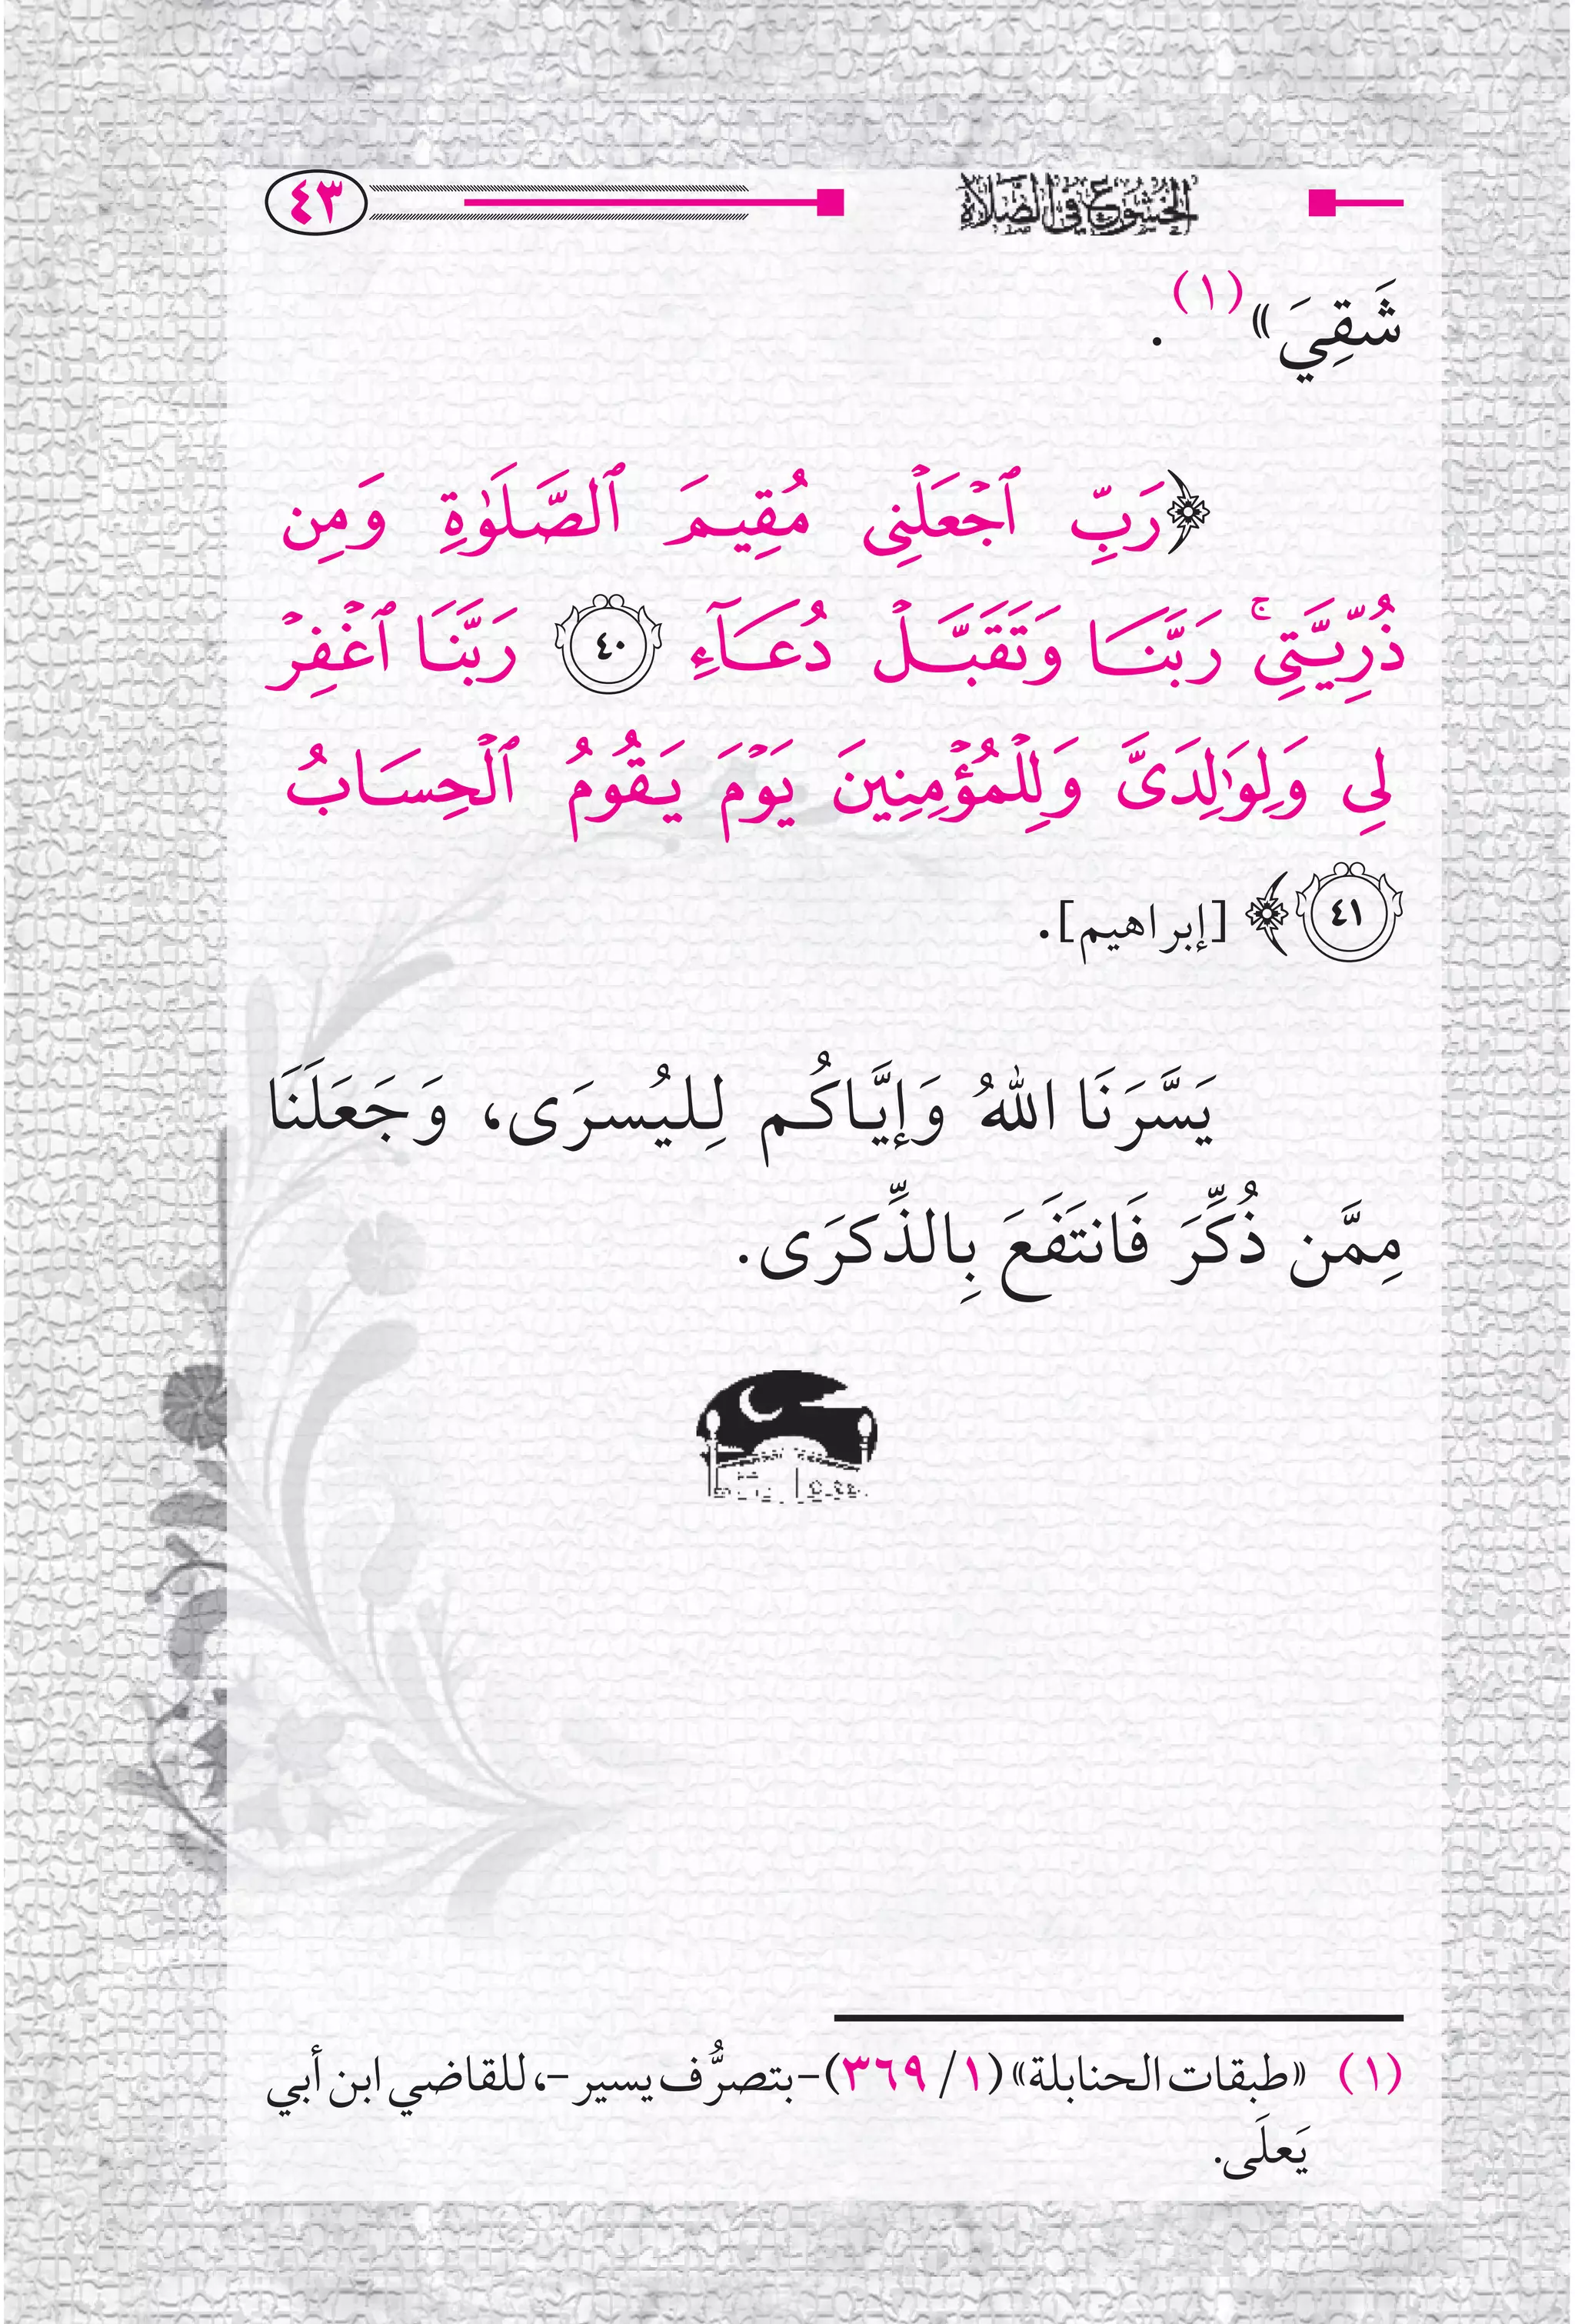 الخشوع في الصلاة ٤٣
شَقِيَ»(١).
﴿رَبِّ ٱجْعَلْنِى مُقِيمَ ٱلصَّلَوٰةِ وَمِن
ذُرِّيَّتِى ۚ رَبَّنَا وَتَقَبَّلْ دُعَآءِ ٤٠ رَبَّنَا ٱغْفِرْ
لِى وَلِوَٰلِدَىَّ وَلِلْمُؤْمِنِينَ يَوْمَ يَقُومُ ٱلْحِسَابُ
٤١﴾ [إبراهيم].
يَسَّرَنَا اللهُ وَإيَّاكُم لِليُسرَى، وَجَعَلَنَا
مِمَّن ذُكِّرَ فَانتَفَعَ بِالذِّكرَى.
(١) «طبقات الحنابلة» (١/ ٣٦٩) -بتصرُّف يسير-، للقاضي ابن أبي
يَعلَى.